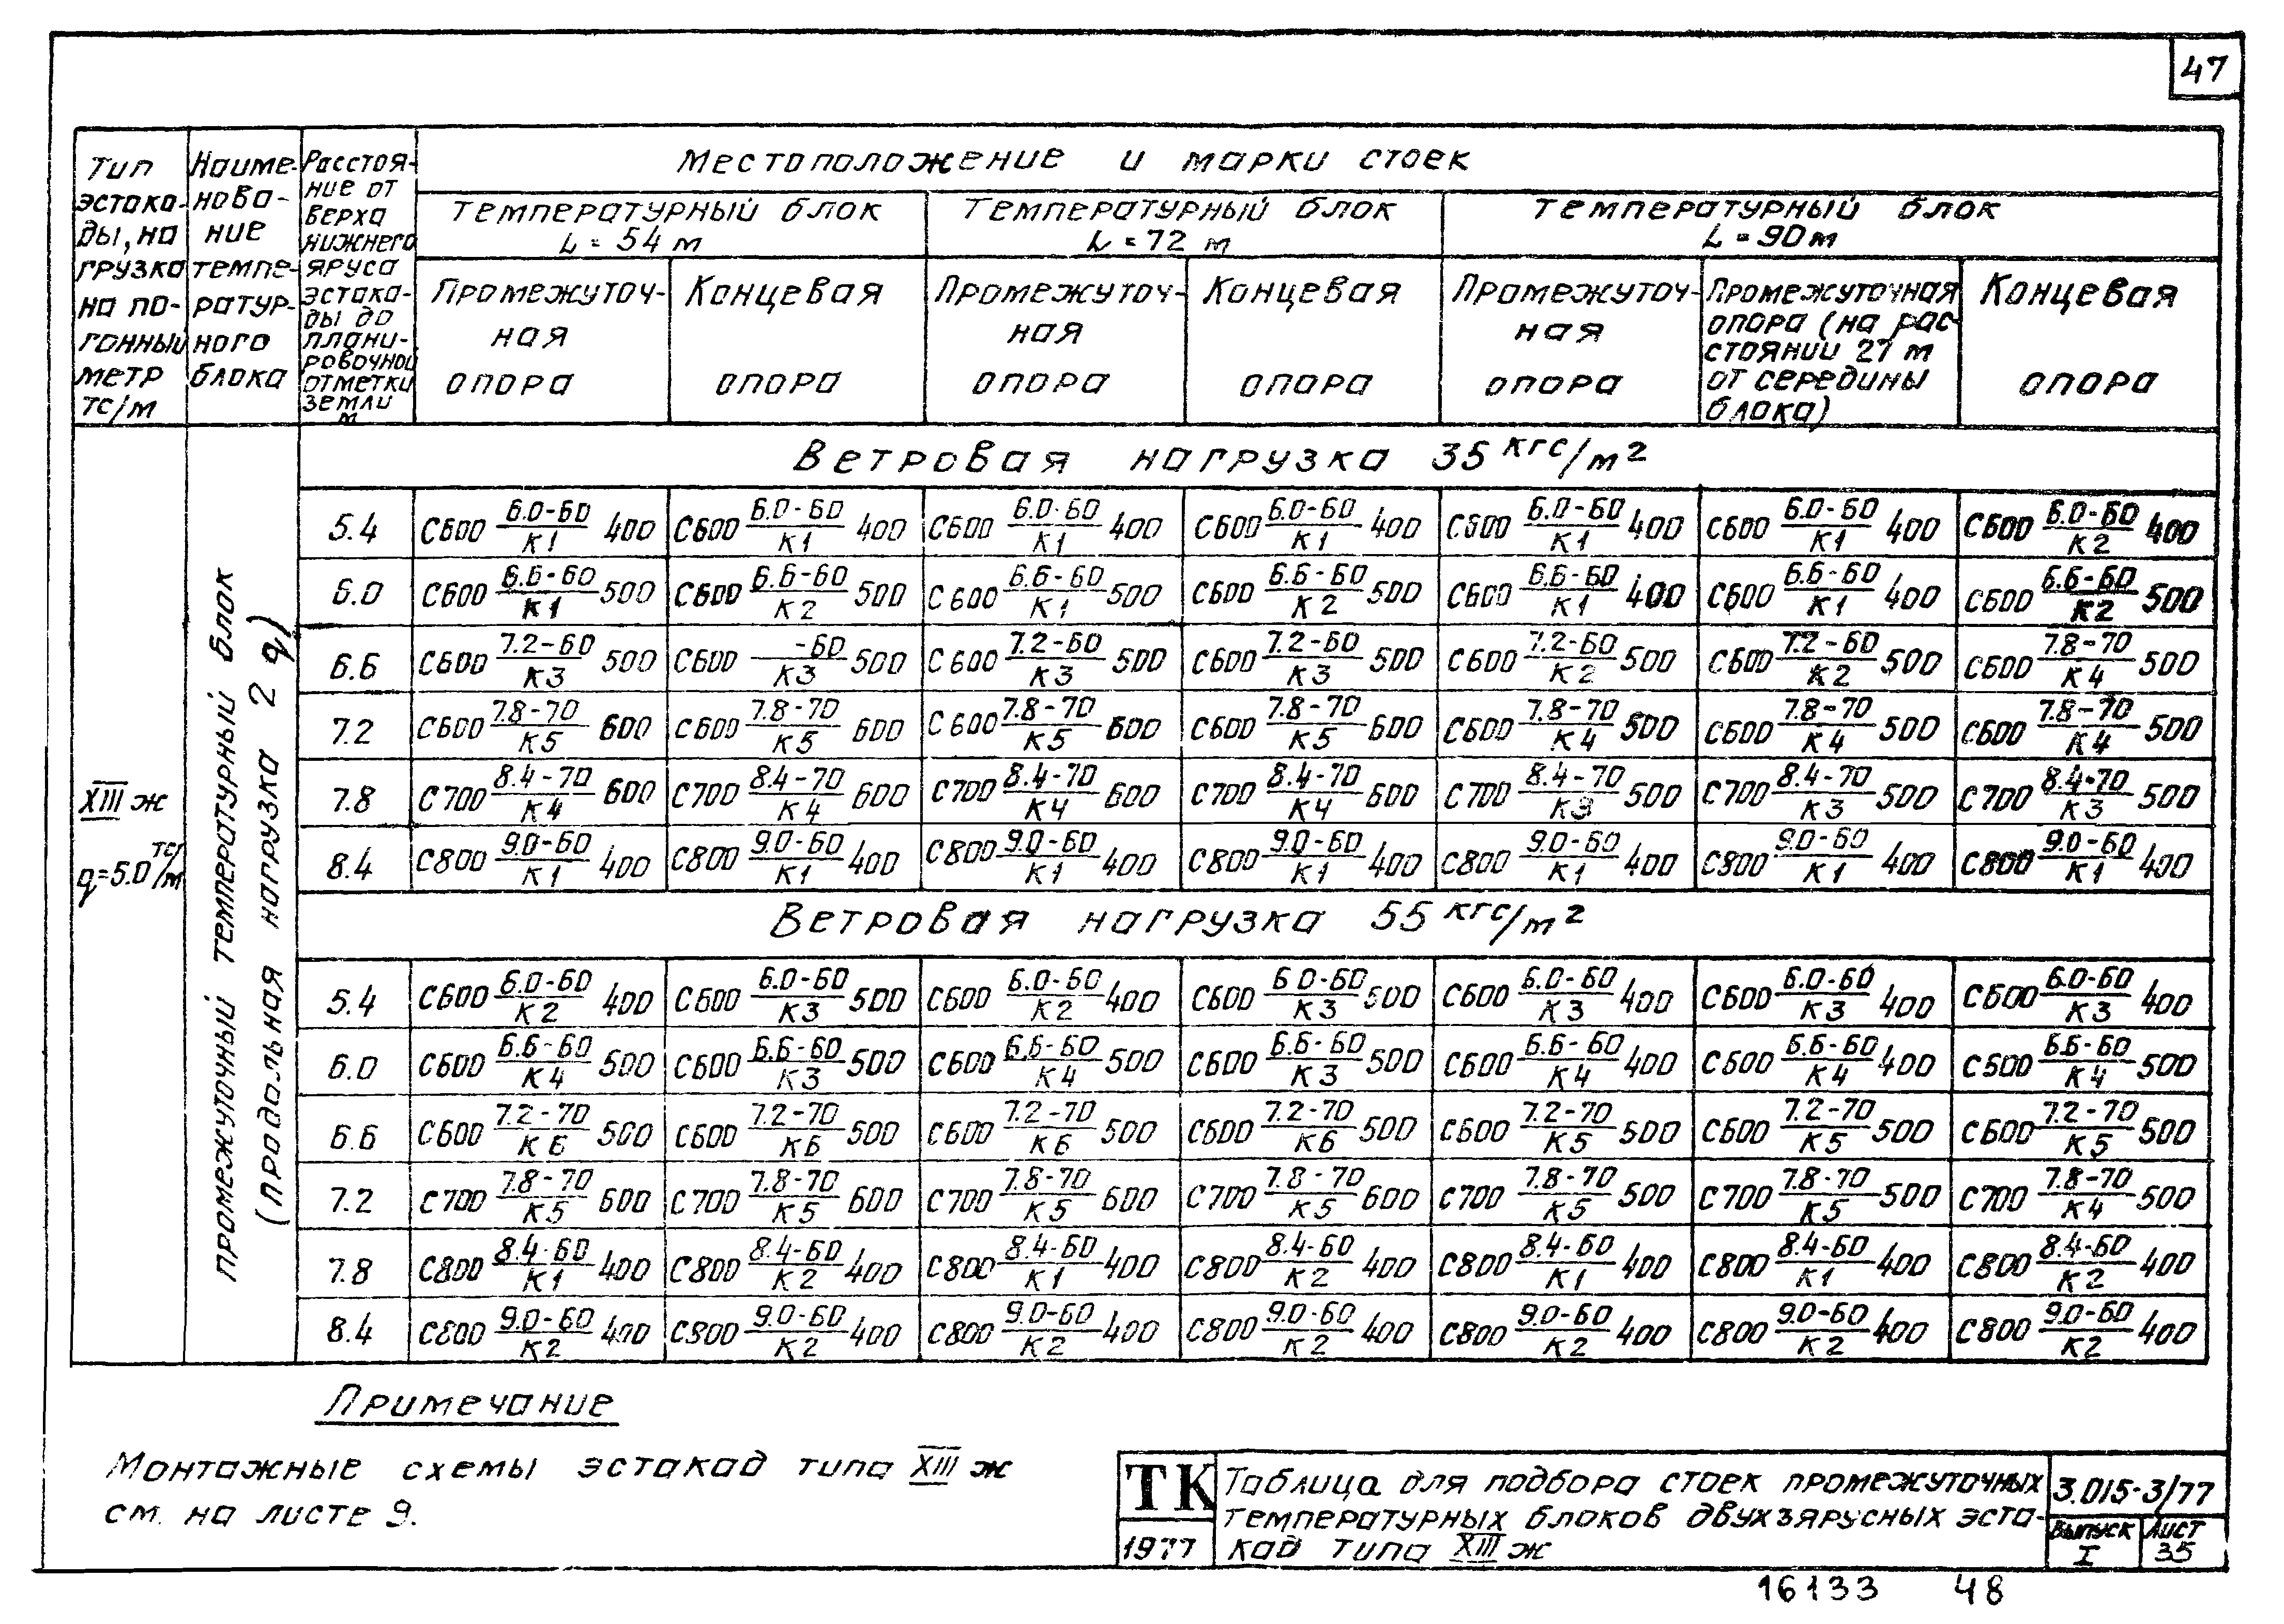 47
Тип эстака-ды, на грузка на по-гонный метр тс/м
Наиме-нова-ние темпе-ратур-ного блока
Расстоя-ние от верха нижнего яруса эстака-ды до плани-ровочной отметки земли м
Местоположение и марки стоек
Температурный блок L = 54 м
Температурный блок L = 72 м
Температурный блок L = 90 м
Промежуточ-ная опора
Концевая опора
Промежуточ-ная опора
Концевая опора
Промежуточ-ная опора
Промежуточная опора (на рас-стоянии 27 м от середины блока)
Концевая опора
XIII ж
q=5.0 тс/м
Промежуточный температурный блок
(продольная нагрузка 2 q)
Ветровая нагрузка 35 кгс/м²
5.4 С600 6.0-60/К1 400 С600 6.0-60/К1 400 С600 6.0-60/К1 400 С600 6.0-60/К1 400 С600 6.0-60/К1 400 С600 6.0-60/К1 400 С600 6.0-60/К2 400
6.0 С600 6.6-60/К1 500 С600 6.6-60/К2 500 С600 6.6-60/К1 500 С600 6.6-60/К2 500 С600 6.6-60/К1 400 С600 6.6-60/К1 400 С600 6.6-60/К2 500
6.6 С600 7.2-60/К3 500 С600 -60/К3 500 С600 7.2-60/К3 500 С600 7.2-60/К3 500 С600 7.2-60/К2 500 С600 7.2-60/К2 500 С600 7.8-70/К4 500
7.2 С600 7.8-70/К5 600 С600 7.8-70/К5 600 С600 7.8-70/К5 600 С600 7.8-70/К5 600 С600 7.8-70/К4 500 С600 7.8-70/К4 500 С600 7.8-70/К4 500
7.8 С700 8.4-70/К4 600 С700 8.4-70/К4 600 С700 8.4-70/К4 600 С700 8.4-70/К4 600 С700 8.4-70/К3 500 С700 8.4-70/К3 500 С700 8.4-70/К3 500
8.4 С800 9.0-60/К1 400 С800 9.0-60/К1 400 С800 9.0-60/К1 400 С800 9.0-60/К1 400 С800 9.0-60/К1 400 С800 9.0-60/К1 400 С800 9.0-60/К1 400
Ветровая нагрузка 55 кгс/м²
5.4 С600 6.0-60/К2 400 С600 6.0-60/К3 500 С600 6.0-60/К2 400 С600 6.0-60/К3 500 С600 6.0-60/К3 400 С600 6.0-60/К3 400 С600 6.0-60/К3 400
6.0 С600 6.6-60/К4 500 С600 6.6-60/К3 500 С600 6.6-60/К4 500 С600 6.6-60/К3 500 С600 6.6-60/К4 400 С600 6.6-60/К4 400 С600 6.6-60/К4 500
6.6 С600 7.2-70/К6 500 С600 7.2-70/К6 500 С600 7.2-70/К6 500 С600 7.2-70/К6 500 С600 7.2-70/К5 500 С600 7.2-70/К5 500 С600 7.2-70/К5 500
7.2 С700 7.8-70/К5 600 С700 7.8-70/К5 600 С700 7.8-70/К5 600 С700 7.8-70/К5 600 С700 7.8-70/К5 500 С700 7.8-70/К5 500 С700 7.8-70/К4 500
7.8 С800 8.4-60/К1 400 С800 8.4-60/К2 400 С800 8.4-60/К1 400 С800 8.4-60/К2 400 С800 8.4-60/К1 400 С800 8.4-60/К1 400 С800 8.4-60/К2 400
8.4 С800 9.0-60/К2 400 С800 9.0-60/К2 400 С800 9.0-60/К2 400 С800 9.0-60/К2 400 С800 9.0-60/К2 400 С800 9.0-60/К2 400 С800 9.0-60/К2 400
Примечание
Монтажные схемы эстакад типа XIII ж
см. на листе 9.
ТК
1977
Таблица для подбора стоек промежуточных
температурных блоков двухъярусных эста-
кад типа XIII ж
3.015-3/77
Выпуск I
Лист 35
16133 48